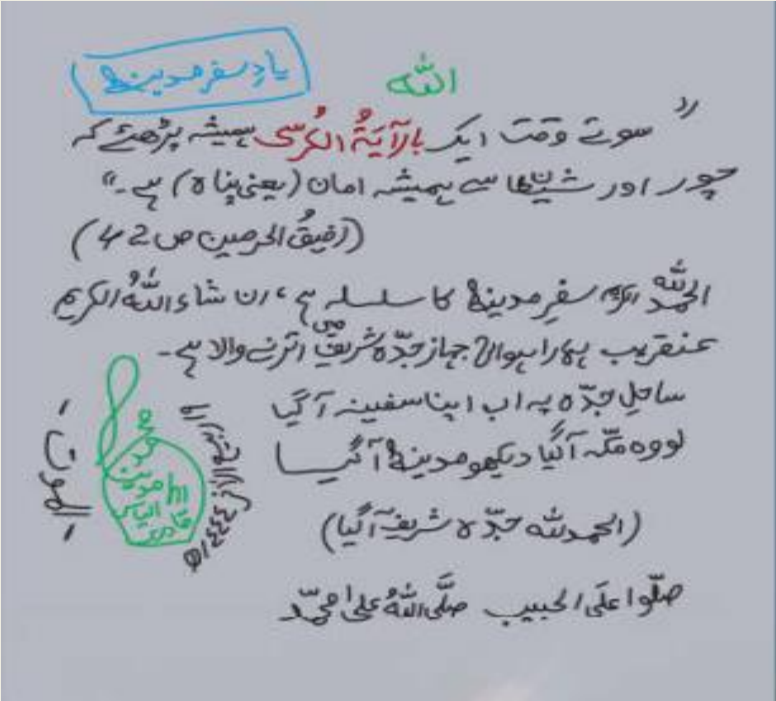 یادِ سفرِ مدینہ
اللہ
"سوتے وقت ایک بار آیَۃُ الکُرسی ہمیشہ پڑھئے کہ
چور اور شیطان سے ہمیشہ امان (یعنی پناہ) ہے۔"
(رفیقُ الحرمین ص 42)
الحمدُ للہ سفرِ مدینہ کا سلسلہ ہے، ان شاءَ اللہُ الکریم
عنقریب ہمارا ہوائی جہاز جدّہ شریف میں اترنے والا ہے۔
ساحلِ جدّہ پہ اب اپنا سفینہ آ گیا
لو وہ مکّہ آ گیا دیکھو مدینہ آ گیا
(الحمد للہ جدّہ شریف آ گیا)
صلّوا علَی الحبیب صلَّی اللہُ علیٰ محمّد
الیاس
قادری
۱۴۴۴ھ
الموت